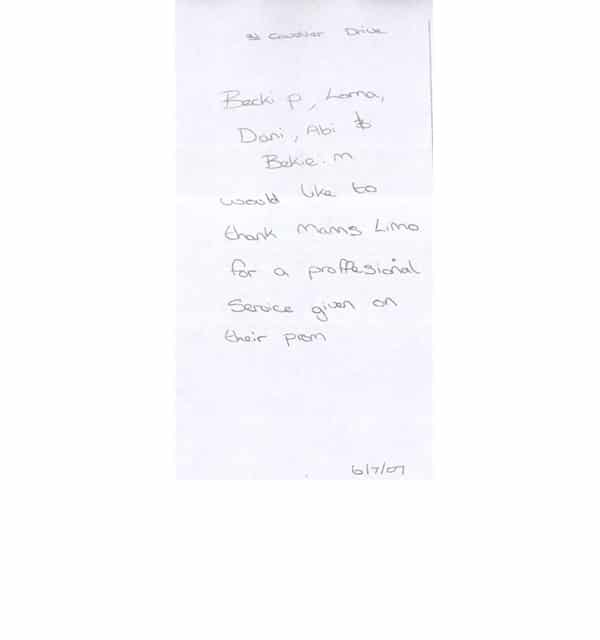 Drive
Becki P, Lorna,
Dani, Abi &
Bekie. M
would like to
thank Mann's Limo
for a proffesional
Service given on
their prom
6/7/07